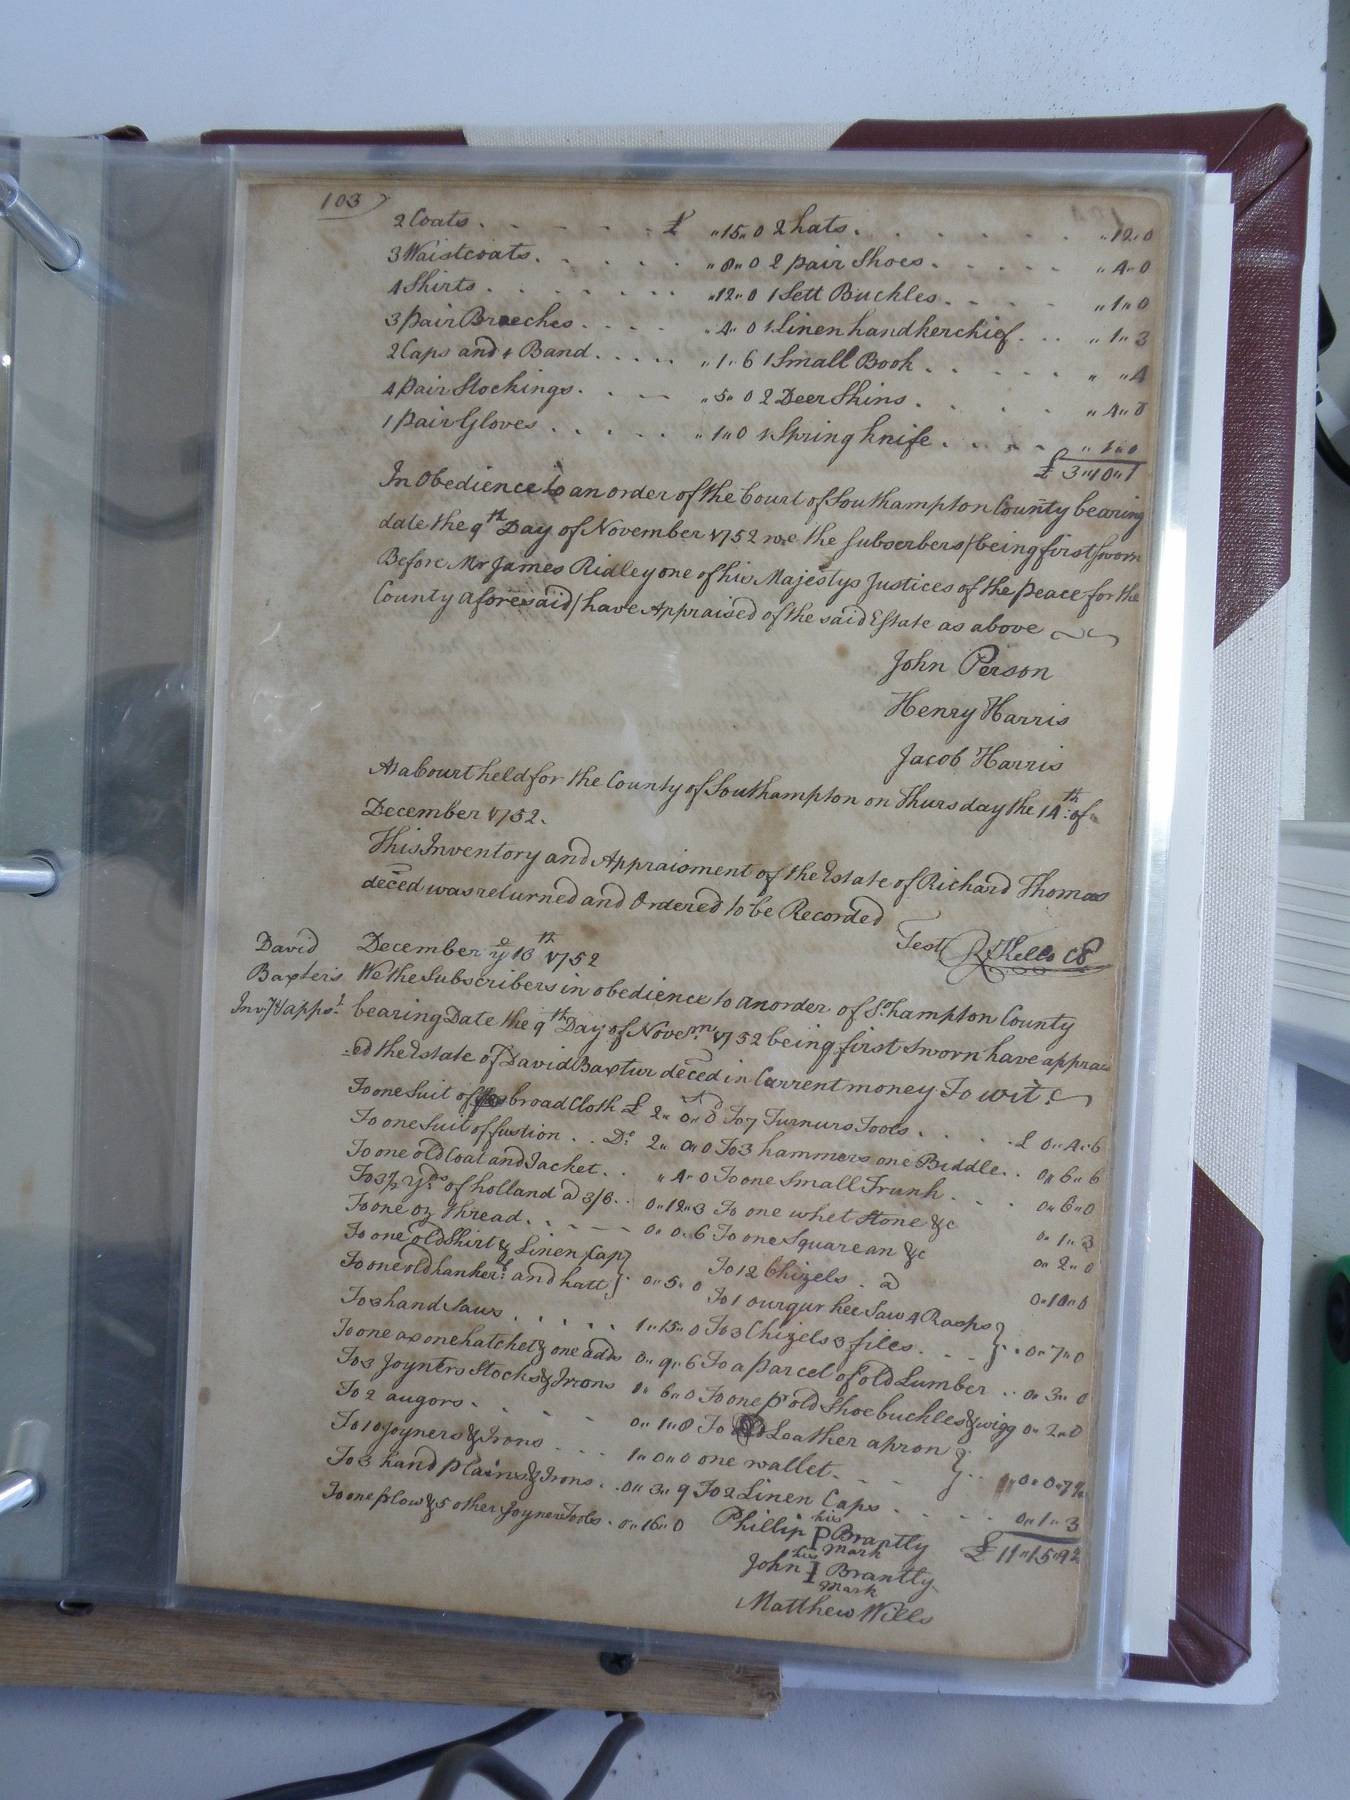 103
2 Coats . . . . . £ " 15 " 0 2 hats . . . . . " 12 " 0
3 Waistcoats . . . . . " 8 " 0 2 pair Shoes . . . . . " 4 " 0
4 Shirts . . . . . " 12 " 0 1 Sett Buckles . . . . " 1 " 0
3 pair Breeches . . . . " 4 " 0 1 Linen handkerchief . . . " 1 " 3
2 Caps and 1 Band . . . . " 1 " 6 1 Small Book . . . . . " " 4
4 pair Stockings . . . " 5 " 0 2 Deer Skins . . . . " 4 " 8
1 pair Gloves . . . . . " 1 " 0 1 Spring knife . . . . " 1 " 0
£ 3 " 10 " 1
In Obedience to an order of the Court of Southampton County bearing
date the 9th Day of November 1752 we the Subscrbers / being first sworn
Before Mr James Ridley one of his Majestys Justices of the peace for the
County aforesaid / have Appraised of the said Estate as above
John Person
Henry Harris
Jacob Harris
At a Court held for the County of Southampton on Thursday the 14th of
December 1752.
This Inventory and Appraisment of the Estate of Richard Thomas
deced was returned and Ordered to be Recorded
Test R Kello CC
David
Baxter's
Invy & appst
December ye 13th 1752
We the Subscribers in obedience to an order of So hampton County
bearing Date the 9th Day of Novemr 1752 being first sworn have apprai
=ed the Estate of David Baxtur deced in Current money To wit.
To one Suit of broad Cloth £ 2 " 0 " 0 To 7 Turnurs Tools . . . . £ 0 " 4 " 6
To one Suit of fustion . . Do 2 " 0 " 0 To 3 hammers one Biddle . . 0 " 6 " 6
To one old Coat and Jacket . . " 4 " 0 To one Small Trunk . . . . 0 " 6 " 0
To 3½ Yds of holland a 3/6 . . 0 " 12 " 3 To one whet Stone &c 0 " 1 " 3
To one oz thread . . . . 0 " 0 " 6 To one Square an &c 0 " 2 " 0
To one old Shirt & Linen Cap } To 12 Chizels . a 0 " 10 " 0
To one old hankerf and hatt } 0 " 5 " 0 To 1 ourgur hee Saw 4 Rasps }
To 3 hand Saws . . . . . 1 " 15 " 0 To 3 Chizels 3 files . . . } . 0 " 7 " 0
To one ax one hatchet & one adds 0 " 9 " 6 To a parcel of old Lumber . . 0 " 3 " 0
To 3 Joynters Stocks & Irons 0 " 6 " 0 To one pr old Shoe buckles & wigg 0 " 2 " 0
To 2 augors . . . . 0 " 1 " 8 To Old Leather apron }
To 10 Joyners & Irons . . . 1 " 0 " 0 one wallet . . . . } . . 0 " 0 " 7½
To 3 hand plains & Irons . . 0 " 3 " 9 To 2 Linen Caps . . . . . 0 " 1 " 3
To one plow & 5 other Joyners Tools . 0 " 16 " 0 £ 11 " 15 " 9½
Phillip his P mark Brantly
John his I mark Brantly
Matthew Wills